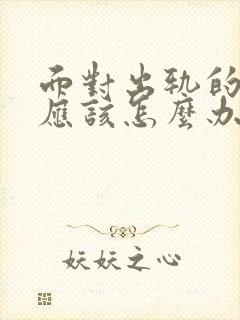 面對出軌的
應該怎麼办
妖妖之心